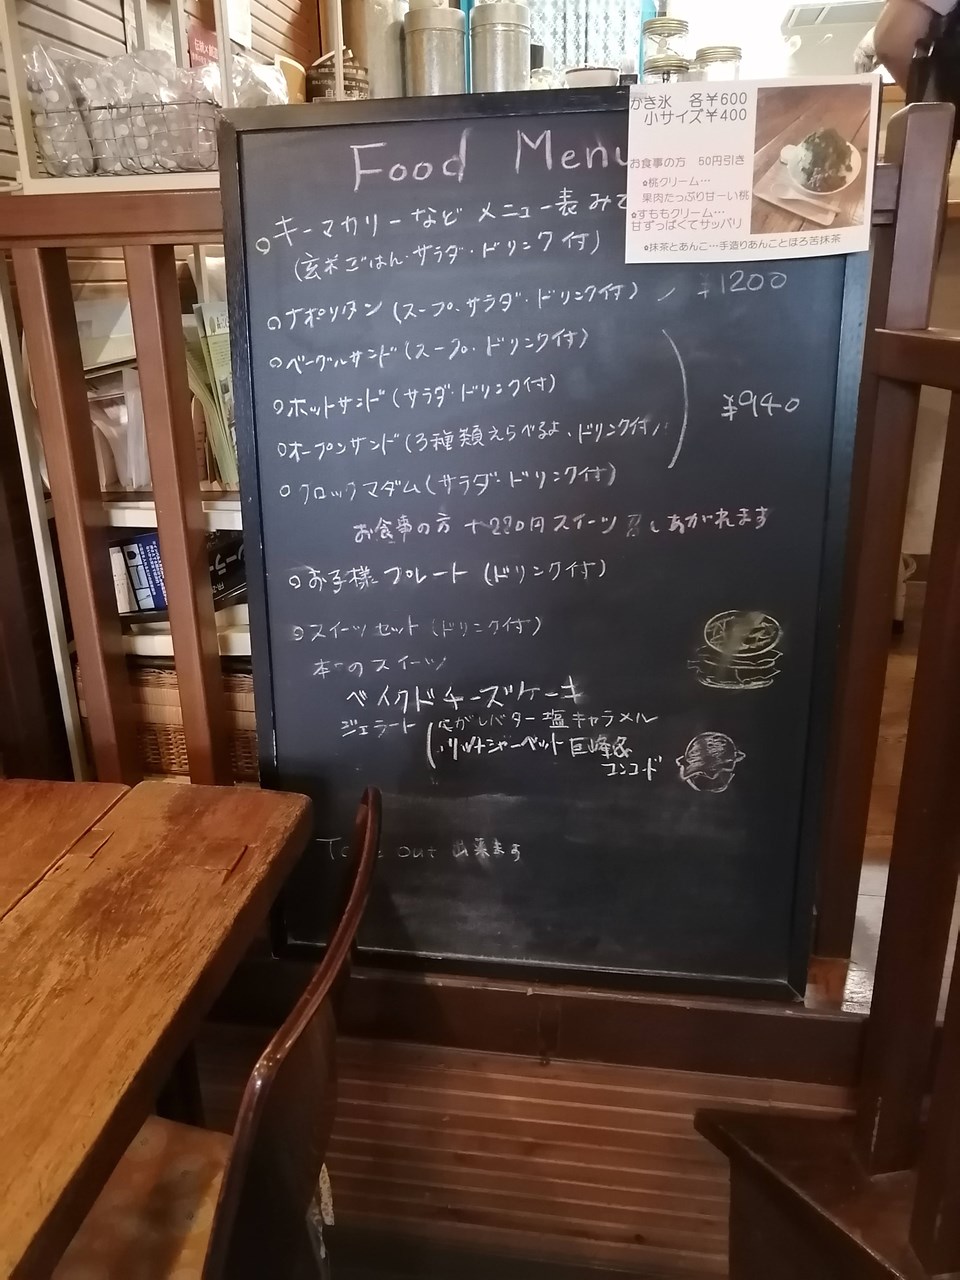 Food Menu
キーマカリーなど メニュー表 みて
(玄米ごはん・サラダ・ドリンク付)
ナポリタン (スープ・サラダ・ドリンク付) ¥1200
ベーグルサンド (スープ・ドリンク付)
ホットサンド (サラダ・ドリンク付)
¥940
オープンサンド (3種類えらべるよ、ドリンク付)
クロックマダム (サラダ・ドリンク付)
お食事の方 +220円 スイーツ 召しあがれます
お子様プレート (ドリンク付)
スイーツセット (ドリンク付)
本日のスイーツ
ベイクドチーズケーキ
ジェラート (こがしバター塩キャラメル
リッチシャーベット 巨峰&
コンコード
Take out 出来ます
かき氷 各¥600
小サイズ¥400
お食事の方 50円引き
✿桃クリーム…
果肉たっぷり甘ーい桃
✿すももクリーム…
甘ずっぱくてサッパリ
✿抹茶とあんこ…手造りあんことほろ苦抹茶